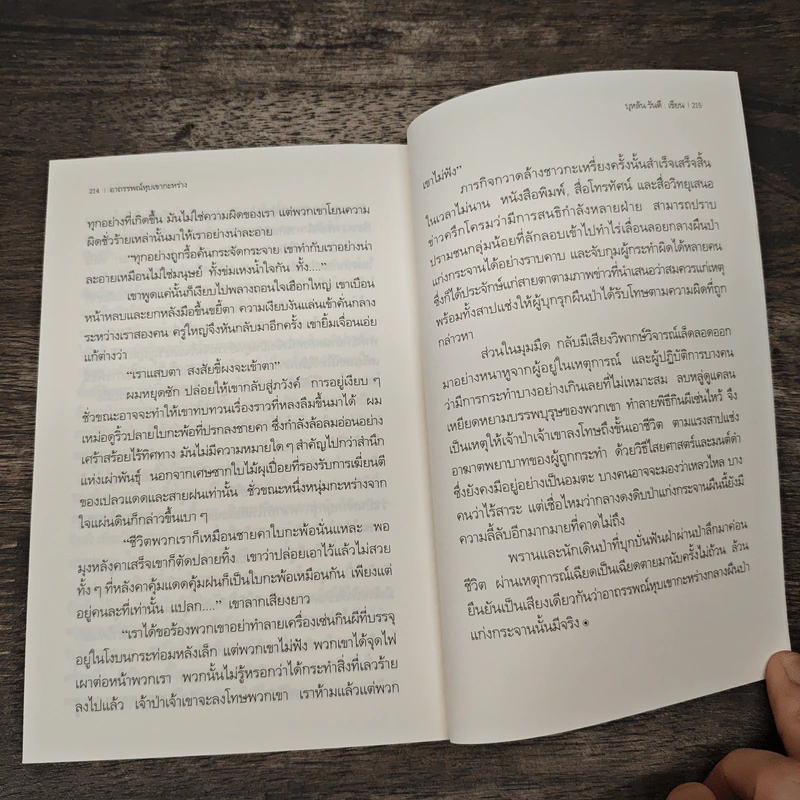 214 | อาถรรพณ์หุบเขากะหร่าง
ทุกอย่างที่เกิดขึ้น มันไม่ใช่ความผิดของเรา แต่พวกเขาโยนความ
ผิดชั่วร้ายเหล่านั้นมาให้เราอย่างน่าละอาย
“ทุกอย่างถูกรื้อค้นกระจัดกระจาย เขาทำกับเราอย่างน่า
ละอายเหมือนไม่ใช่มนุษย์ ทั้งข่มเหงน้ำใจกัน ทั้ง....”
เขาพูดแค่นั้นก็เงียบไปพลางถอนใจเฮือกใหญ่ เขาเบือน
หน้าหลบและยกหลังมือขึ้นขยี้ตา ความเงียบงันแล่นเข้าคั่นกลาง
ระหว่างเราสองคน ครู่ใหญ่จึงหันกลับมาอีกครั้ง เขายิ้มเจื่อนเอ่ย
แก้ต่างว่า
“เราแสบตา สงสัยขี้ผงจะเข้าตา”
ผมหยุดซัก ปล่อยให้เขากลับสู่ภวังค์ การอยู่เงียบ ๆ
ชั่วขณะอาจจะทำให้เขาทบทวนเรื่องราวที่หลงลืมขึ้นมาได้ ผม
เหม่อดูริ้วปลายใบกะพ้อที่ปรกลงชายคา ซึ่งกำลังล้อลมอ่อนอย่าง
เศร้าสร้อยไร้ทิศทาง มันไม่มีความหมายใด ๆ สำคัญไปกว่าสำนึก
แห่งเผ่าพันธุ์ นอกจากเศษซากใบไม้ผุเปื่อยที่รองรับการเฆี่ยนตี
ของเปลวแดดและสายฝนเท่านั้น ชั่วขณะหนึ่งหนุ่มกะหร่างจาก
ใจแผ่นดินก็กล่าวขึ้นเบา ๆ
“ชีวิตพวกเราก็เหมือนชายคาใบกะพ้อนั่นแหละ พอ
มุงหลังคาเสร็จเขาก็ตัดปลายทิ้ง เขาว่าปล่อยเอาไว้แล้วไม่สวย
ทั้ง ๆ ที่หลังคาคุ้มแดดคุ้มฝนก็เป็นใบกะพ้อเหมือนกัน เพียงแต่
อยู่คนละที่เท่านั้น แปลก....” เขาลากเสียงยาว
“เราได้ขอร้องพวกเขาอย่าทำลายเครื่องเซ่นกินผีที่บรรจุ
อยู่ในโงบนกระท่อมหลังเล็ก แต่พวกเขาไม่ฟัง พวกเขาได้จุดไฟ
เผาต่อหน้าพวกเรา พวกนั้นไม่รู้หรอกว่าได้กระทำสิ่งที่เลวร้าย
ลงไปแล้ว เจ้าป่าเจ้าเขาจะลงโทษพวกเขา เราห้ามแล้วแต่พวก
บุหลัน รันตี เขียน | 215
เขาไม่ฟัง”
ภารกิจกวาดล้างชาวกะเหรี่ยงครั้งนั้นสำเร็จเสร็จสิ้น
ในเวลาไม่นาน หนังสือพิมพ์, สื่อโทรทัศน์ และสื่อวิทยุเสนอ
ข่าวครึกโครมว่ามีการสนธิกำลังหลายฝ่าย สามารถปราบ
ปรามชนกลุ่มน้อยที่ลักลอบเข้าไปทำไร่เลื่อนลอยกลางผืนป่า
แก่งกระจานได้อย่างราบคาบ และจับกุมผู้กระทำผิดได้หลายคน
ซึ่งก็ได้ประจักษ์แก่สายตาตามภาพข่าวที่นำเสนอว่าสมควรแก่เหตุ
พร้อมทั้งสาปแช่งให้ผู้บุกรุกผืนป่าได้รับโทษตามความผิดที่ถูก
กล่าวหา
ส่วนในมุมมืด กลับมีเสียงวิพากษ์วิจารณ์เล็ดลอดออก
มาอย่างหนาหูจากผู้อยู่ในเหตุการณ์ และผู้ปฏิบัติการบางคน
ว่ามีการกระทำบางอย่างเกินเลยที่ไม่เหมาะสม ลบหลู่ดูแคลน
เหยียดหยามบรรพบุรุษของพวกเขา ทำลายพิธีกินผีเซ่นไหว้ จึง
เป็นเหตุให้เจ้าป่าเจ้าเขาลงโทษถึงขั้นเอาชีวิต ตามแรงสาปแช่ง
อาฆาตพยาบาทของผู้ถูกกระทำ ด้วยวิธีไสยศาสตร์และมนต์ดำ
ซึ่งยังคงมีอยู่อย่างเป็นอมตะ บางคนอาจจะมองว่าเหลวไหล บาง
คนว่าไร้สาระ แต่เชื่อไหมว่ากลางดงดิบป่าแก่งกระจานผืนนี้ยังมี
ความลี้ลับอีกมากมายที่คาดไม่ถึง
พรานและนักเดินป่าที่บุกบั่นฟันฝ่าผ่านป่าลึกมาค่อน
ชีวิต ผ่านเหตุการณ์เฉียดเป็นเฉียดตายมานับครั้งไม่ถ้วน ล้วน
ยืนยันเป็นเสียงเดียวกันว่าอาถรรพณ์หุบเขากะหร่างกลางผืนป่า
แก่งกระจานนั้นมีจริง